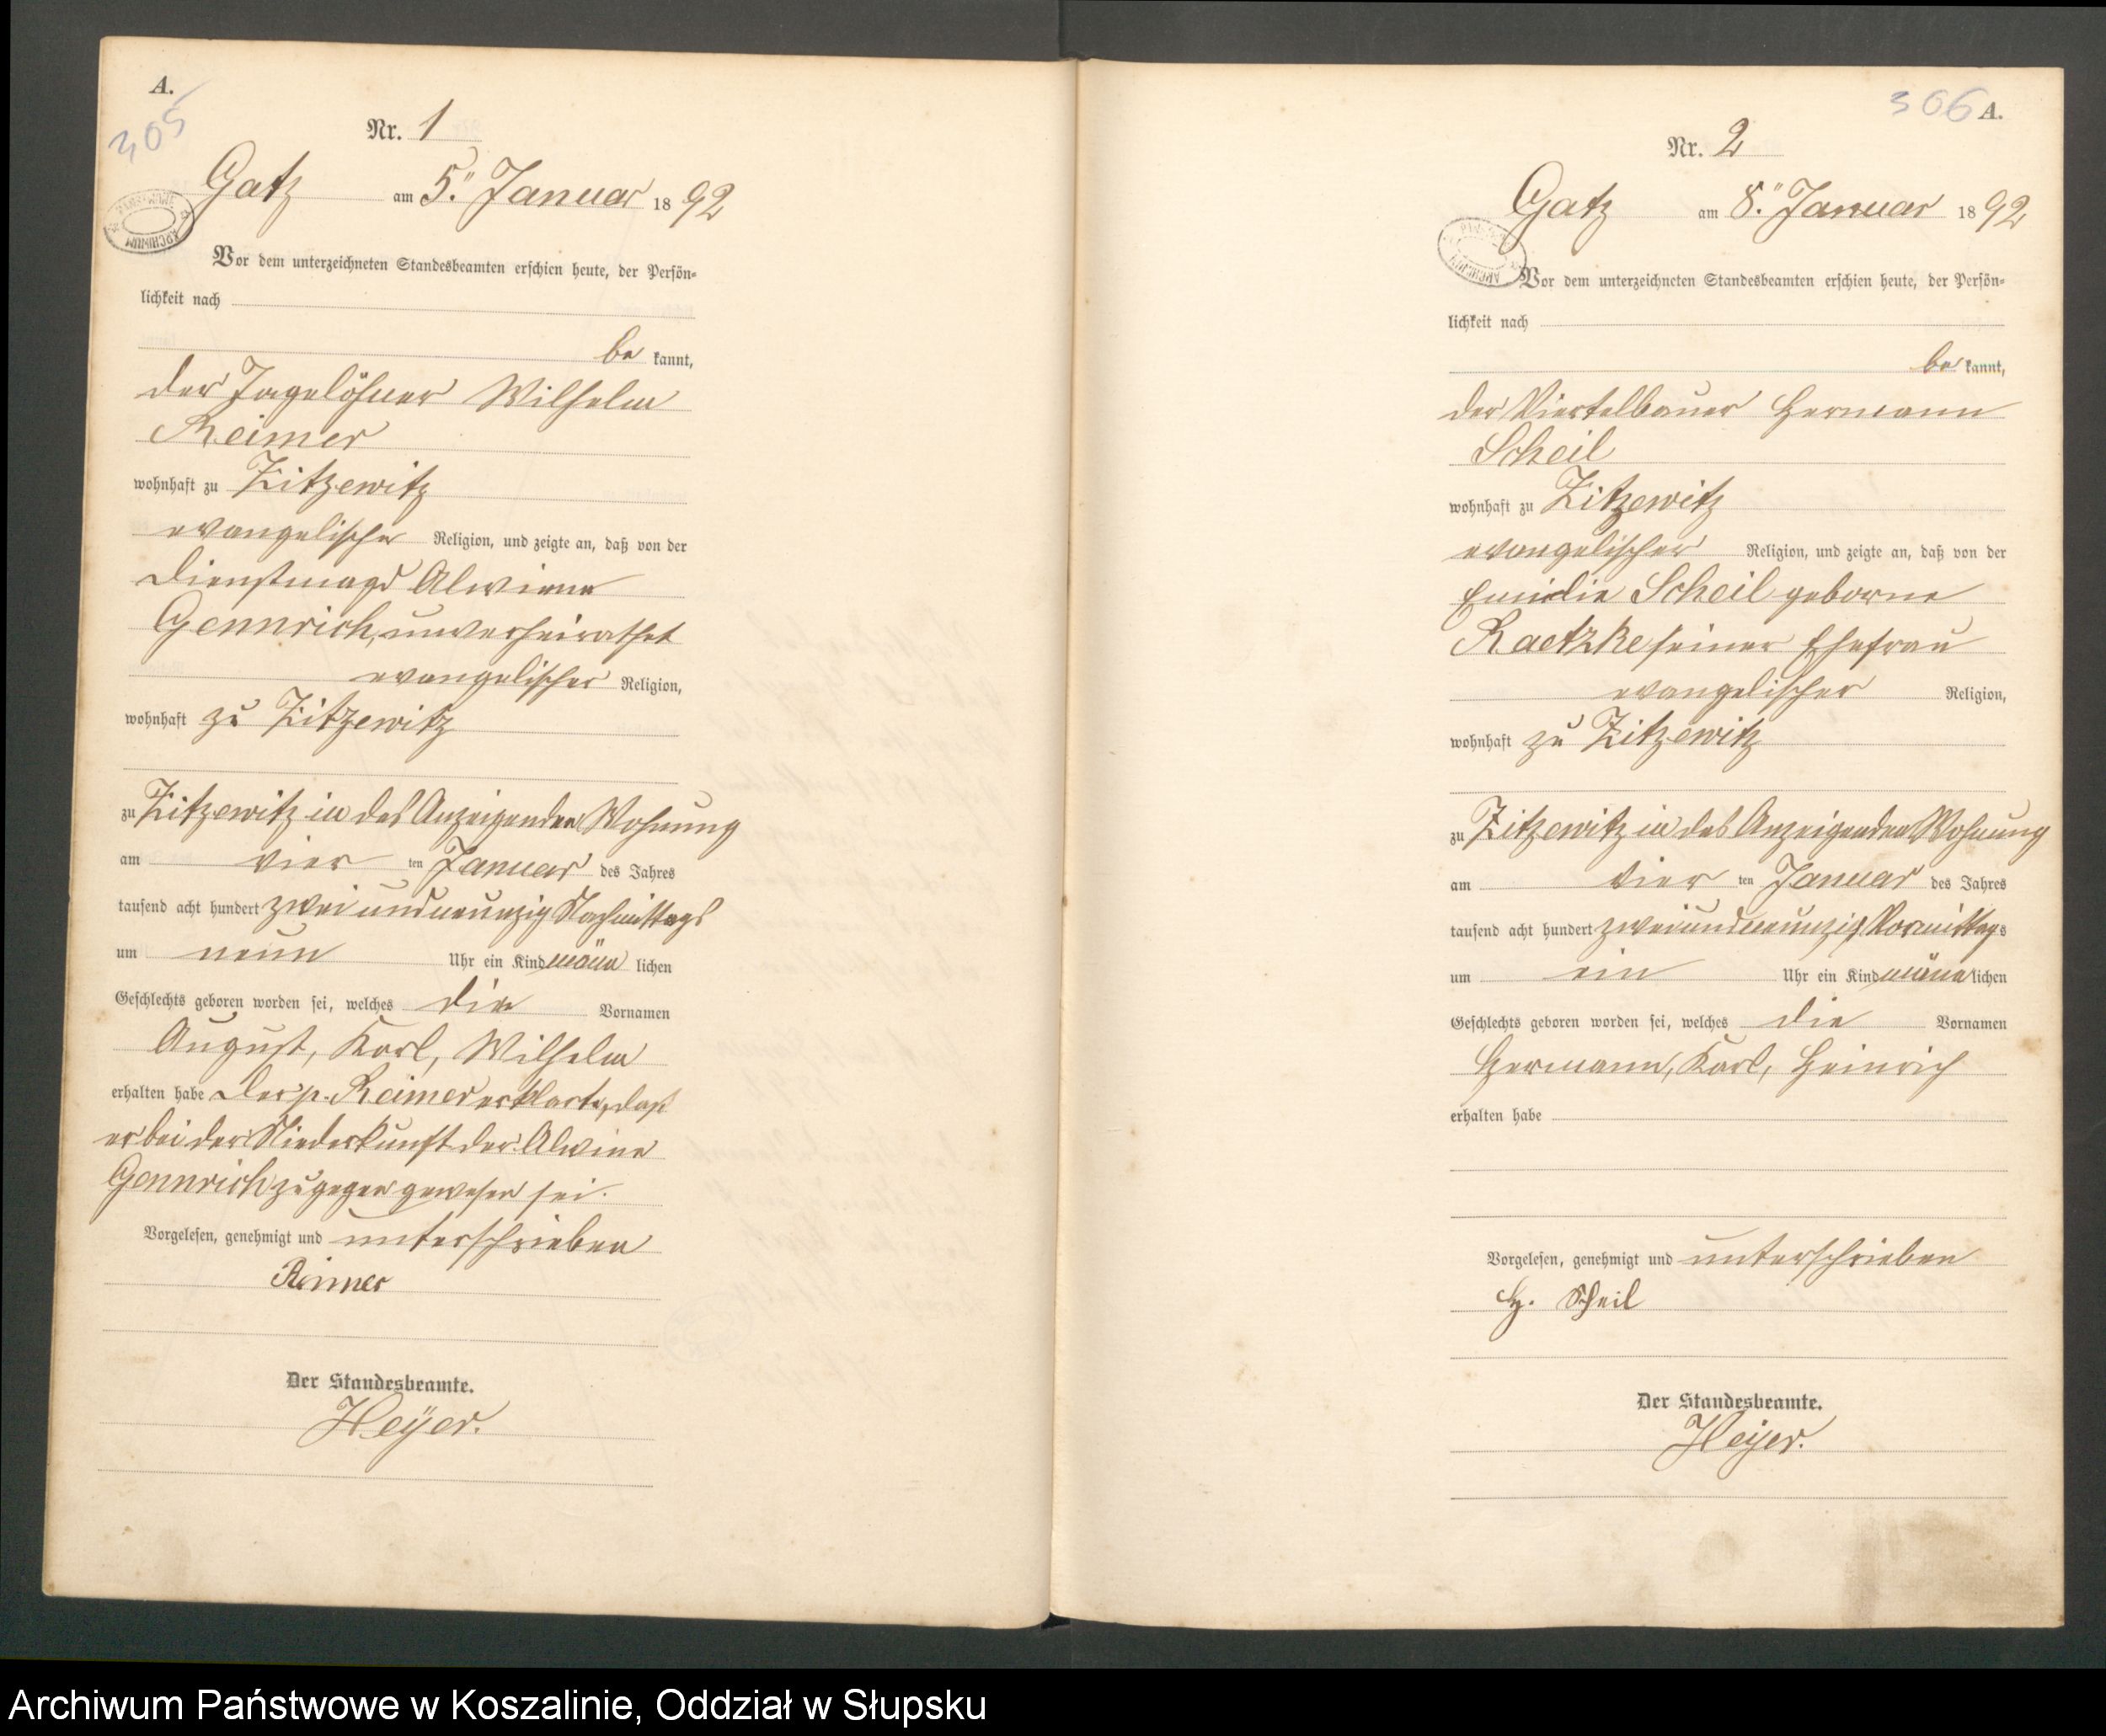 A.
305
Nr. 1
Gatz am 5ten Januar 1892
Vor dem unterzeichneten Standesbeamten erschien heute, der Persön=
lichkeit nach
be kannt,
der Tagelöhner Wilhelm
Reimer
wohnhaft zu Zitzewitz
evangelischer Religion, und zeigte an, daß von der
Dienstmagd Alwine
Gennrich, unverheirathet
evangelischer Religion,
wohnhaft zu Zitzewitz
zu Zitzewitz in des Anzeigenden Wohnung
am vier ten Januar des Jahres
tausend acht hundert zwei und neunzig Nachmittags
um neun Uhr ein Kind männ lichen
Geschlechts geboren worden sei, welches die Vornamen
August, Karl, Wilhelm
erhalten habe Der p. Reimer erklärte, daß
er bei der Niederkunft der Alwine
Gennrich zugegen gewesen sei.
Vorgelesen, genehmigt und unterschrieben
Reimer
Der Standesbeamte.
Heyer.
306 A.
Nr. 2
Gatz am 8ten Januar 1892
ARCHIWUM
Vor dem unterzeichneten Standesbeamten erschien heute, der Persön=
lichkeit nach
be kannt,
der Viertelbauer Hermann
Scheil
wohnhaft zu Zitzewitz
evangelischer Religion, und zeigte an, daß von der
Emilie Scheil geborne
Raetzke seiner Ehefrau
evangelischer Religion,
wohnhaft zu Zitzewitz
zu Zitzewitz in des Anzeigenden Wohnung
am vier ten Januar des Jahres
tausend acht hundert zwei und neunzig Vormittags
um ein Uhr ein Kind männ lichen
Geschlechts geboren worden sei, welches die Vornamen
Hermann, Karl, Heinrich
erhalten habe
Vorgelesen, genehmigt und unterschrieben
H. Scheil
Der Standesbeamte.
Heyer.
Archiwum Państwowe w Koszalinie, Oddział w Słupsku